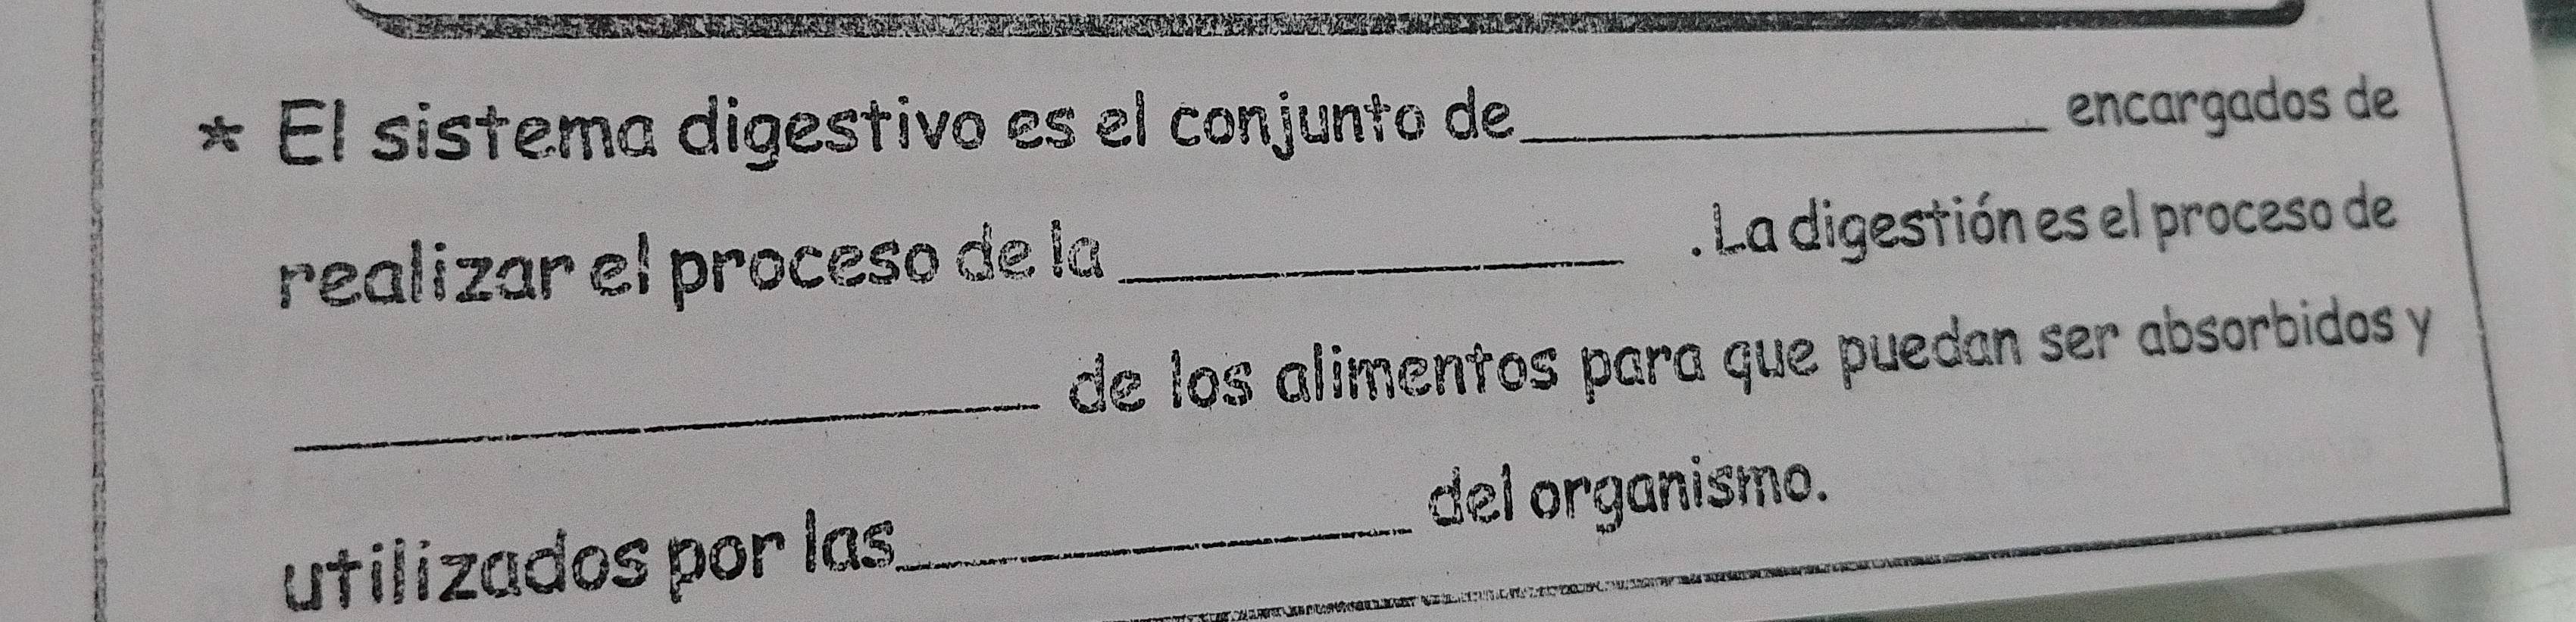 * El sistema digestivo es el conjunto de____________ encargados de
realizar el proceso de la____________. La digestión es el proceso de
____________ de los alimentos para que puedan ser absorbidos y
utilizados por las____________ del organismo.